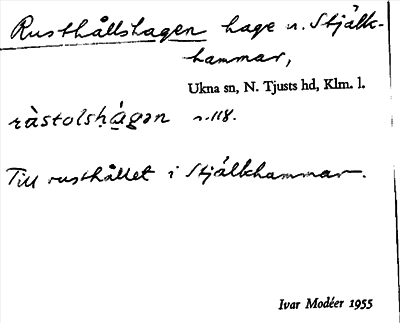 Rusthållshagen hage n. Stjälk-
hammar,
Ukna sn, N. Tjusts hd, Klm. l.
ràstolsḥá̱gən n. 118.
Till rusthållet i Stjälkhammar.
Ivar Modéer 1955